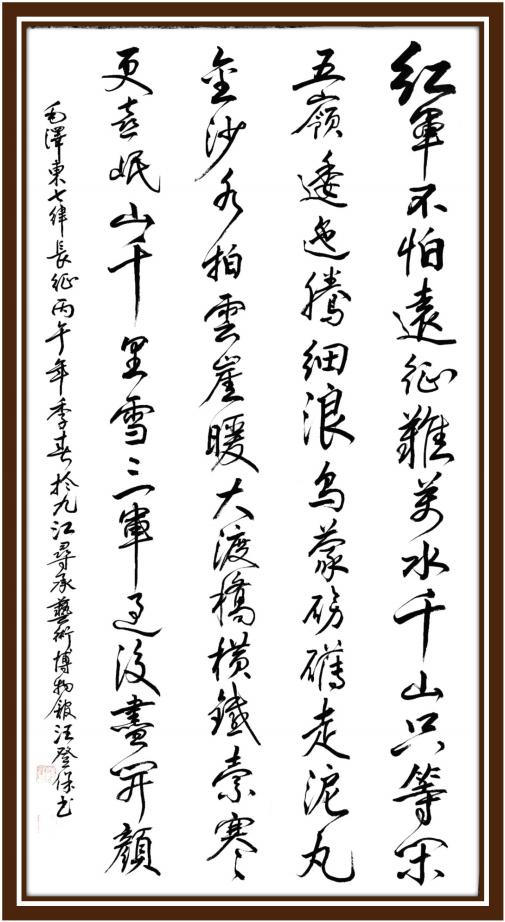 紅軍不怕遠征難萬水千山只等闲
五嶺逶迤騰細浪烏蒙磅礴走泥丸
金沙水拍雲崖暖大渡橋橫鐵索寒
更喜岷山千里雪三軍過後盡開顏
毛澤東七律長征丙午年季春於九江尋承藝術博物館汪登保书